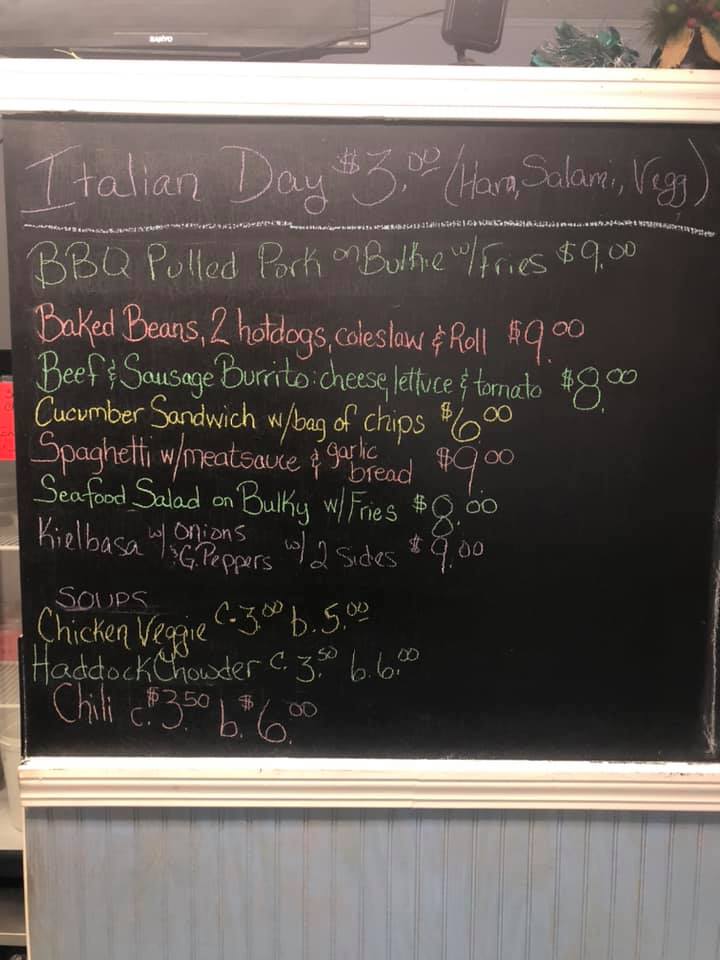 SANYO
Italian Day $3.00 (Ham, Salami, Vegg)
BBQ Pulled Pork on Bulkie w/Fries $9.00
Baked Beans, 2 hotdogs, coleslaw & Roll $9.00
Beef & Sausage Burrito: cheese, lettuce & tomato $8.00
Cucumber Sandwich w/bag of chips $6.00
Spaghetti w/meatsauce & garlic bread $9.00
Seafood Salad on Bulky w/Fries $8.00
Kielbasa w/ Onions & G. Peppers w/ 2 Sides $9.00
SOUPS
Chicken Veggie C. 3.00 b. 5.00
Haddock Chowder C. 3.50 b. 6.00
Chili c. $3.50 b. $6.00